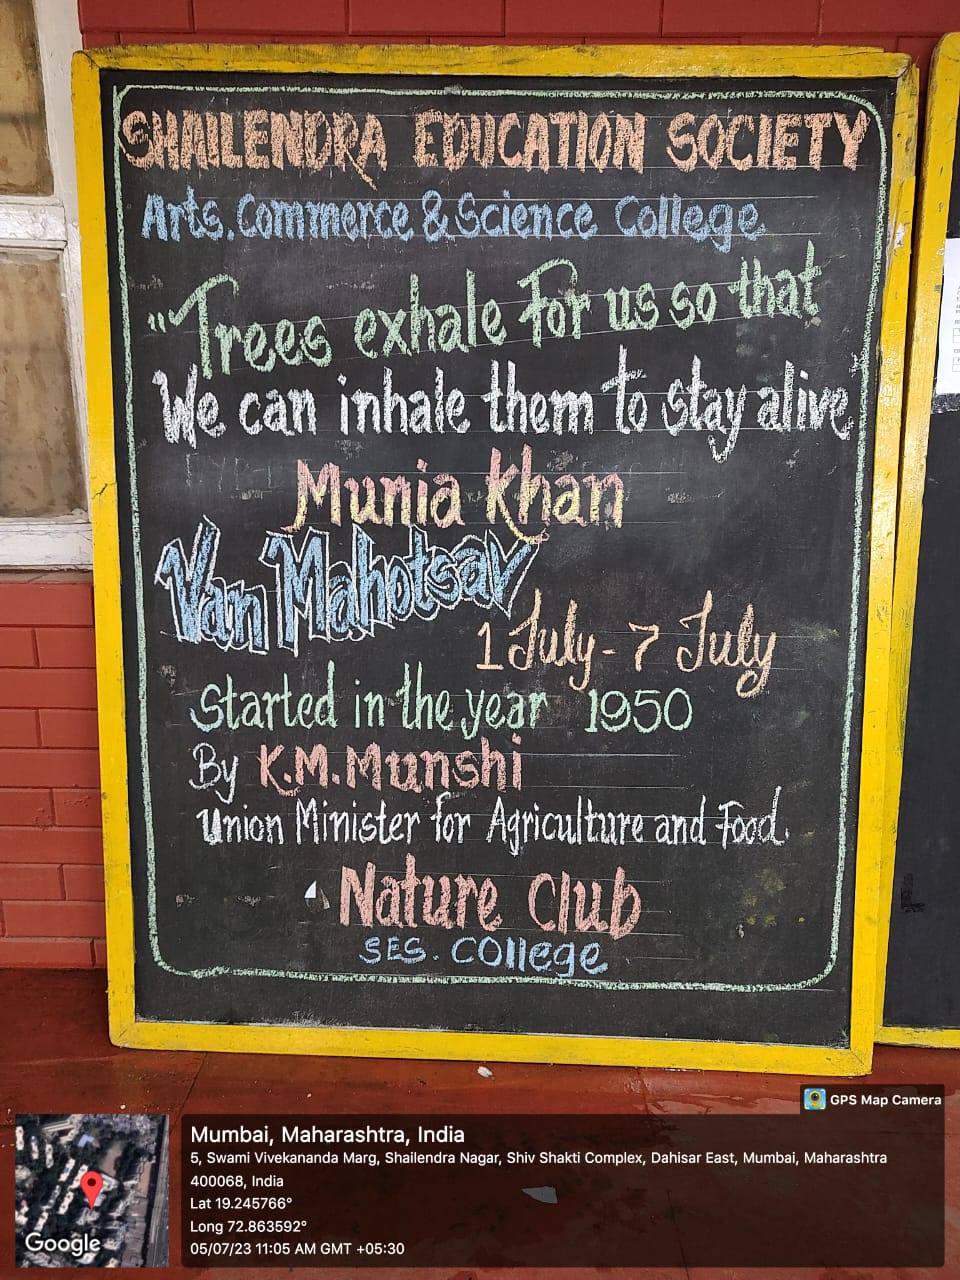 SHAILENDRA EDUCATION SOCIETY
Arts. Commerce & Science College
"Trees exhale for us so that
We can inhale them to stay alive
Munia Khan
Van Mahotsav
1 July - 7 July
Started in the year 1950
By K.M. Munshi
Union Minister for Agriculture and Food.
Nature Club
SES. COllege
GPS Map Camera
Mumbai, Maharashtra, India
5, Swami Vivekananda Marg, Shailendra Nagar, Shiv Shakti Complex, Dahisar East, Mumbai, Maharashtra
400068, India
Lat 19.245766°
Long 72.863592°
05/07/23 11:05 AM GMT +05:30
Google